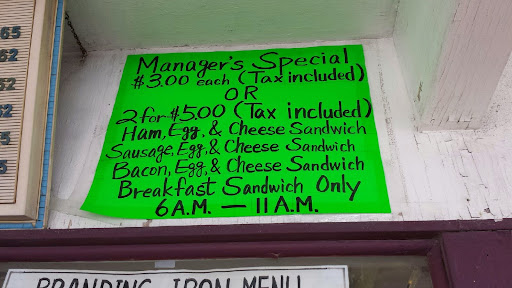 Manager's Special
$3.00 each (Tax included)
OR
2 for $5.00 (Tax included)
Ham, Egg, & Cheese Sandwich
Sausage, Egg, & Cheese Sandwich
Bacon, Egg, & Cheese Sandwich
Breakfast Sandwich Only
6 A.M. — 11 A.M.
BRANDING IRON MENU